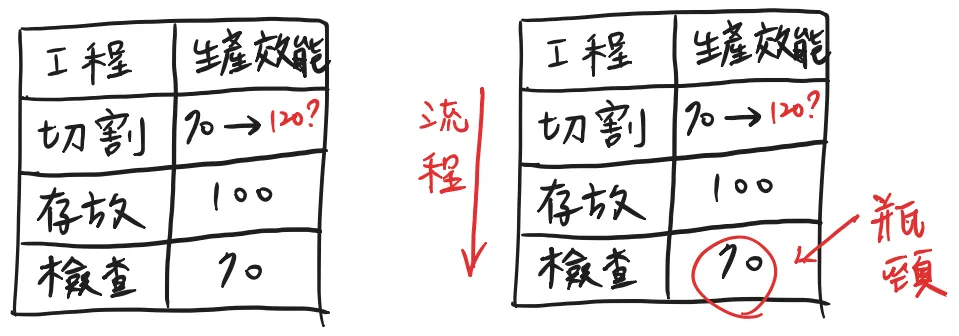 工程 生產效能
切割 70 → 120?
存放 100
檢查 70
流程
工程 生產效能
切割 70 → 120?
存放 100
檢查 70
瓶頸